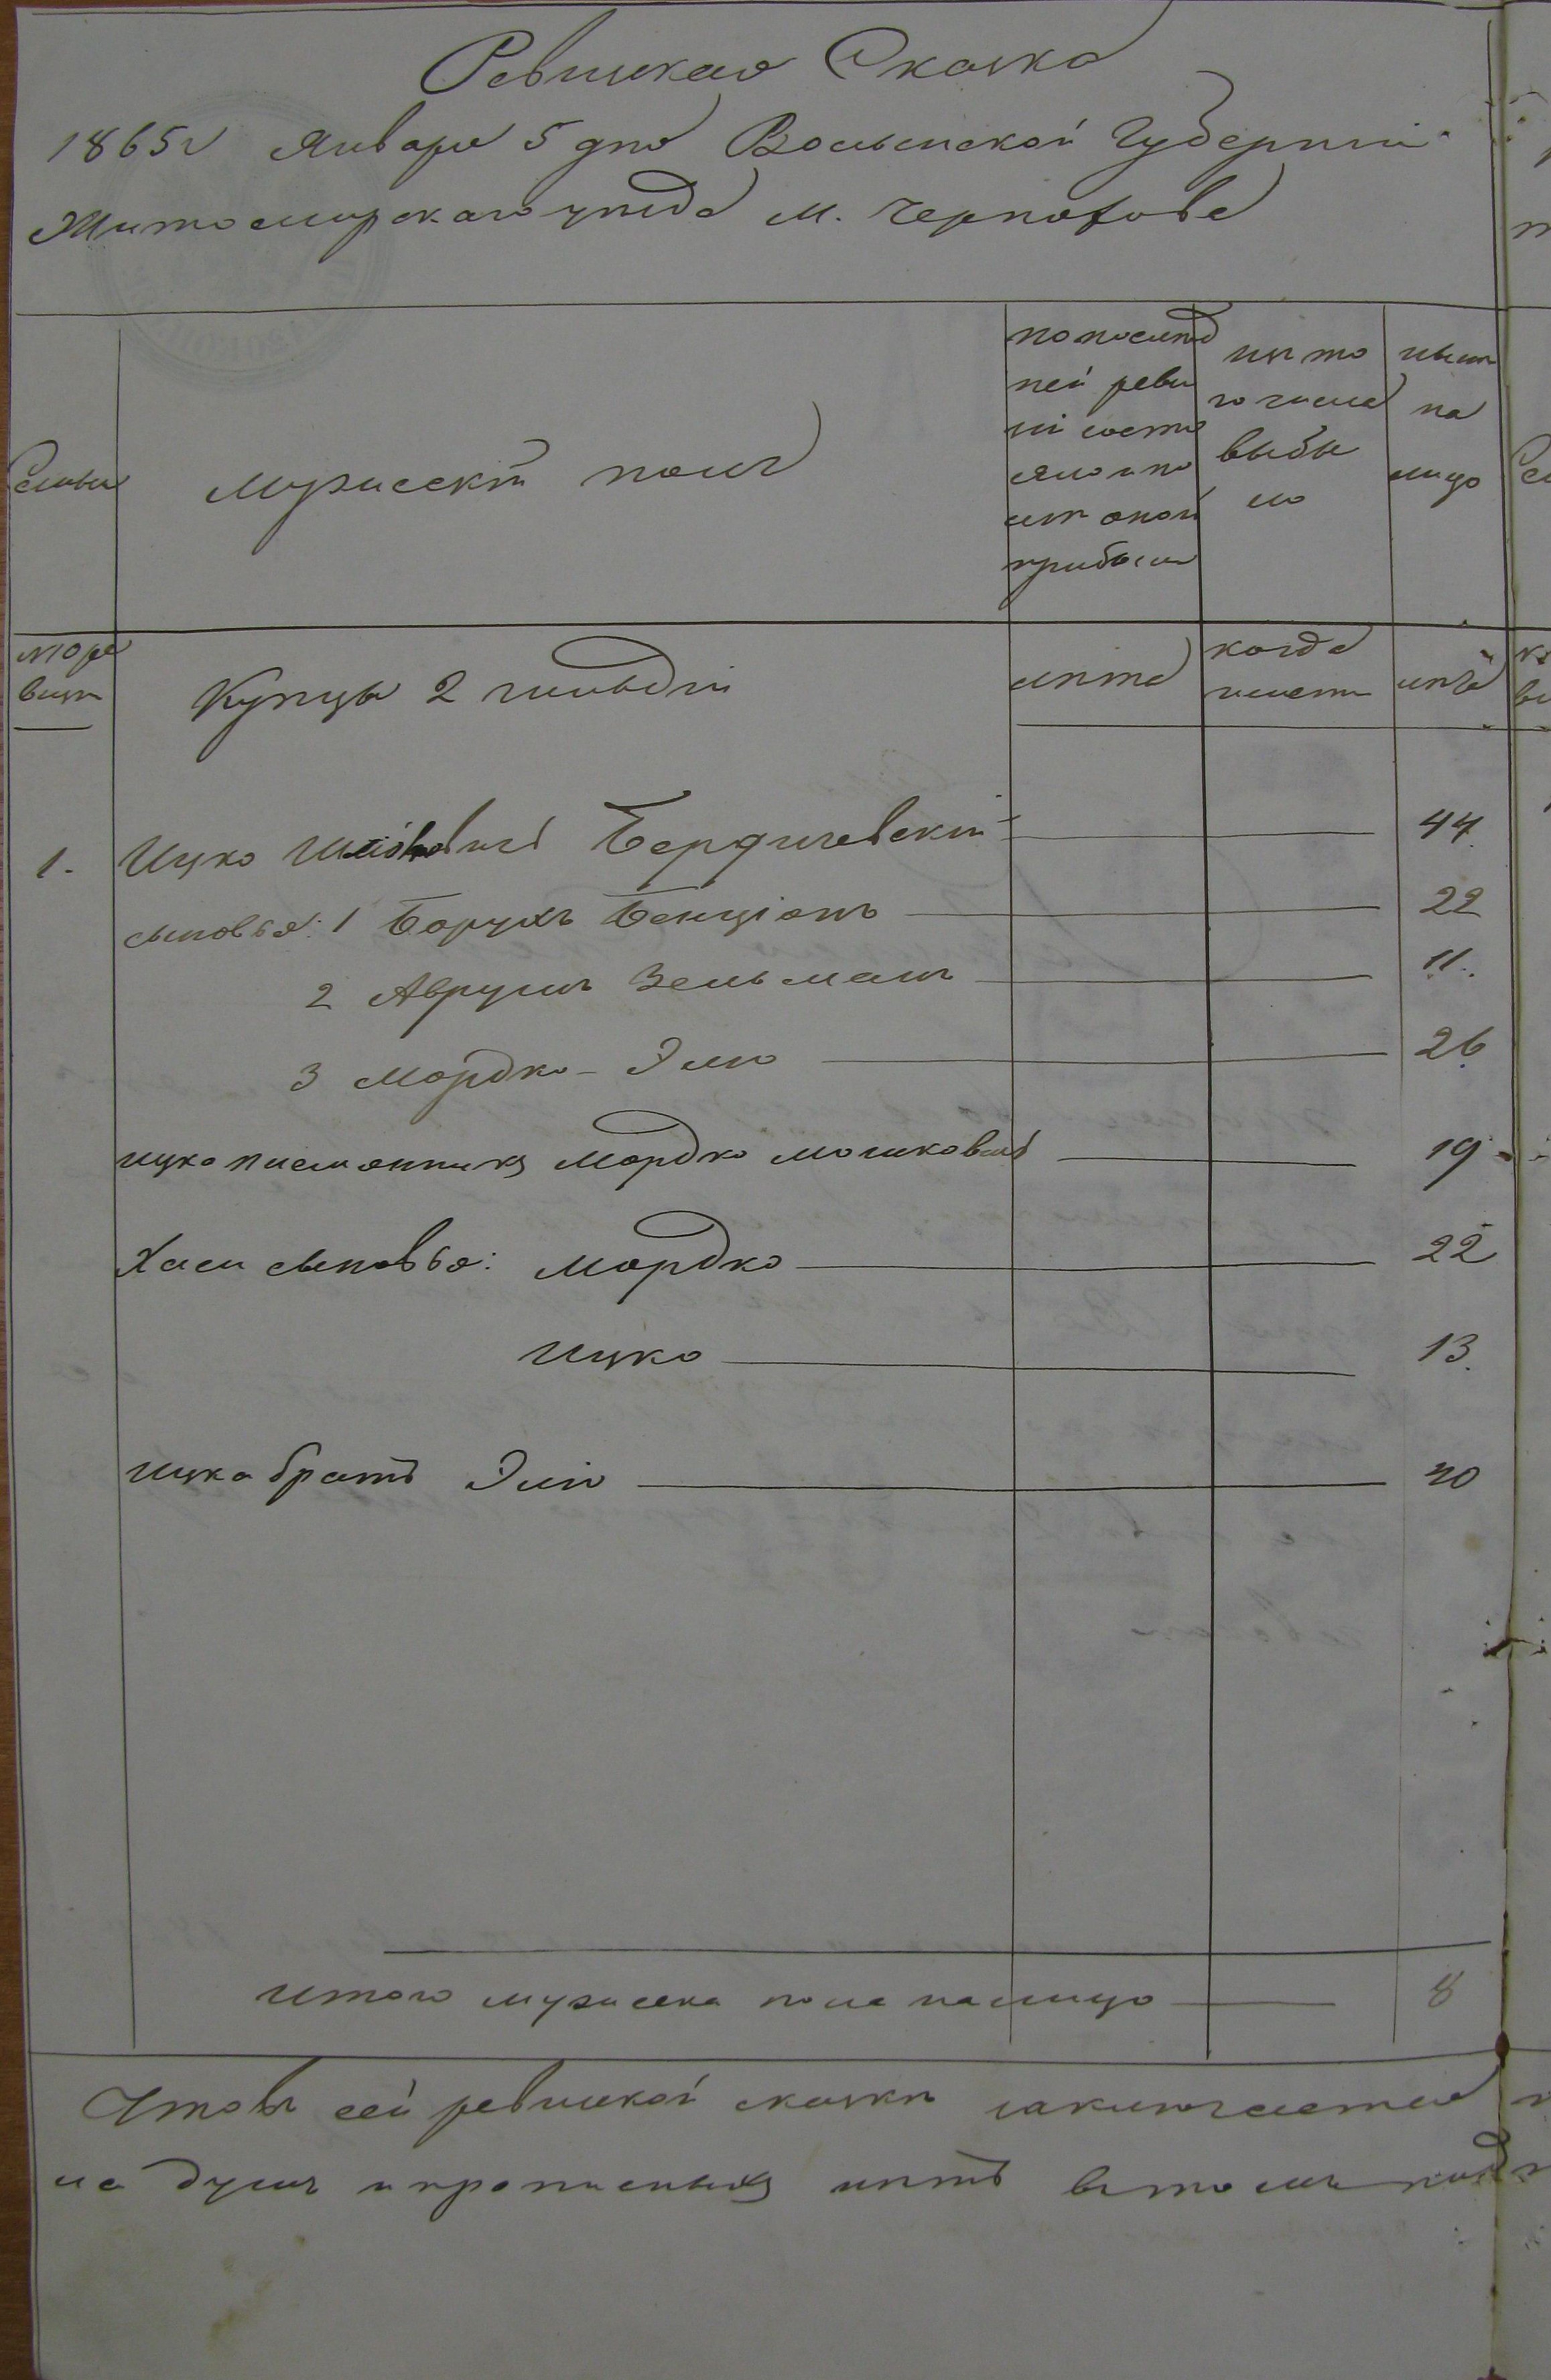 Ревизская Сказка
1865 г Января 5 дня Волынской Губерніи
Житомирскаго уѣзда м. Чернохова
Семьи
Мужескій полъ
по послѣд
ней реви
зіи состо
яло и по
слѣ оной
прибыли
изъ то
го числа
выбы
ло
нынѣ
на
лицо
Купцы 2 гильдіи
лѣта
когда
именно
лѣта
1. Ицко Бердичевскій 44
сыновья: 1 Борухъ Бенціонъ 22
2 Аврумъ Зельманъ 11
3 Мордко - Элио 26
Ицка племянникъ Мордко Мошковичъ 19
Хаси сыновья: Мордко 22
Ицко 13
Ицка братъ Эліо 40
Итого мужеска пола налицо 8
Что въ сей ревизской сказки заключается
на душъ и прописныхъ нѣтъ въ томъ подп